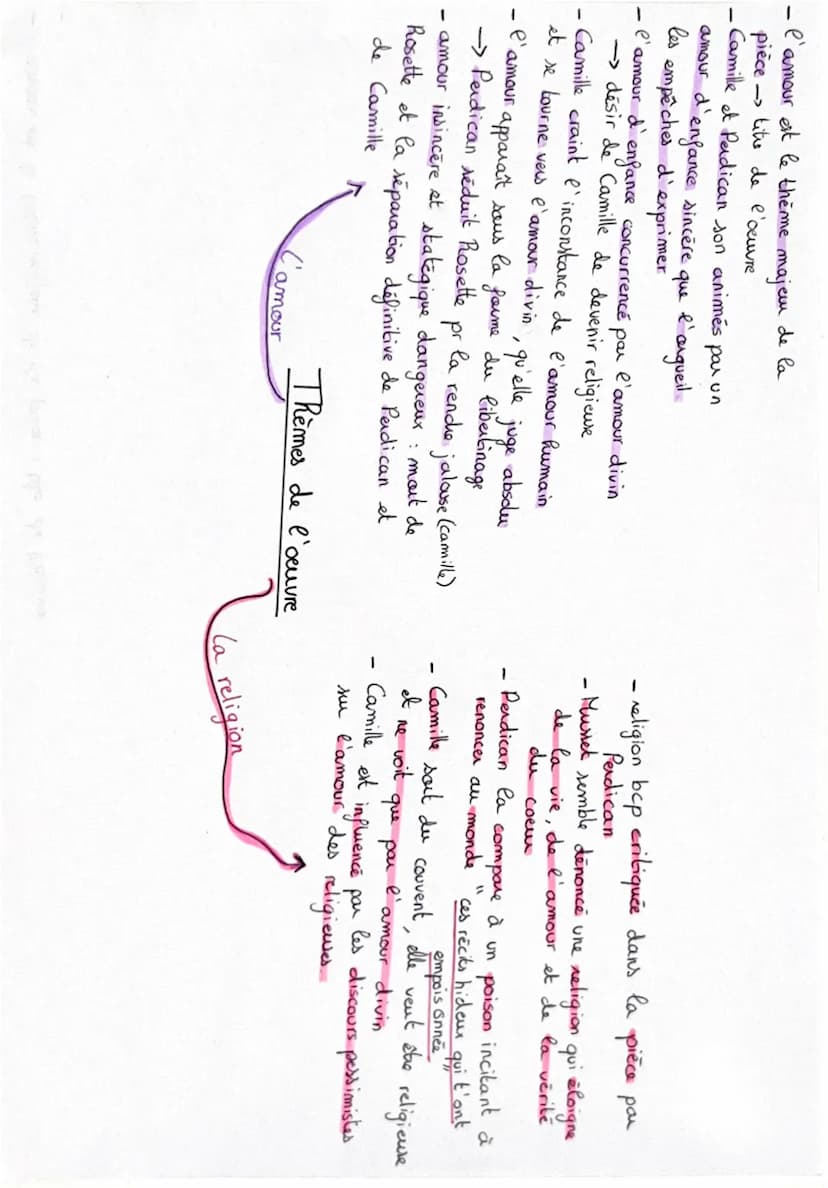 - l'amour est le thème majeur de la
pièce → titre de l'oeuvre
- Camille et Perdican son animés par un
amour d'enfance sincère que l'orgueil
les empêches d'exprimer
- l'amour d'enfance concurrencé par l'amour divin
→ désir de Camille de devenir religieuse
- Camille craint l'inconstance de l'amour humain
et se tourne vers l'amour divin, qu'elle juge absolu
- l'amour apparaît sous la forme du libertinage
→ Perdican séduit Rosette pr la rendre jalouse (camille)
- amour insincère et statégique dangereux : mort de
Rosette et la séparation définitive de Perdican et
de Camille
l'amour
Thèmes de l'oeuvre
la religion
- religion bcp critiquée dans la pièce par
Perdican
- Musset semble dénoncé une religion qui éloigne
de la vie, de l'amour et de la vérité
du coeur
- Perdican la compare à un poison incitant à
renoncer au monde "ces récits hideux qui t'ont
empoisonnée"
- Camille sort du couvent, elle veut être religieuse
et ne voit que par l'amour divin
- Camille est influencé par les discours pessimistes
sur l'amour des religieuses.